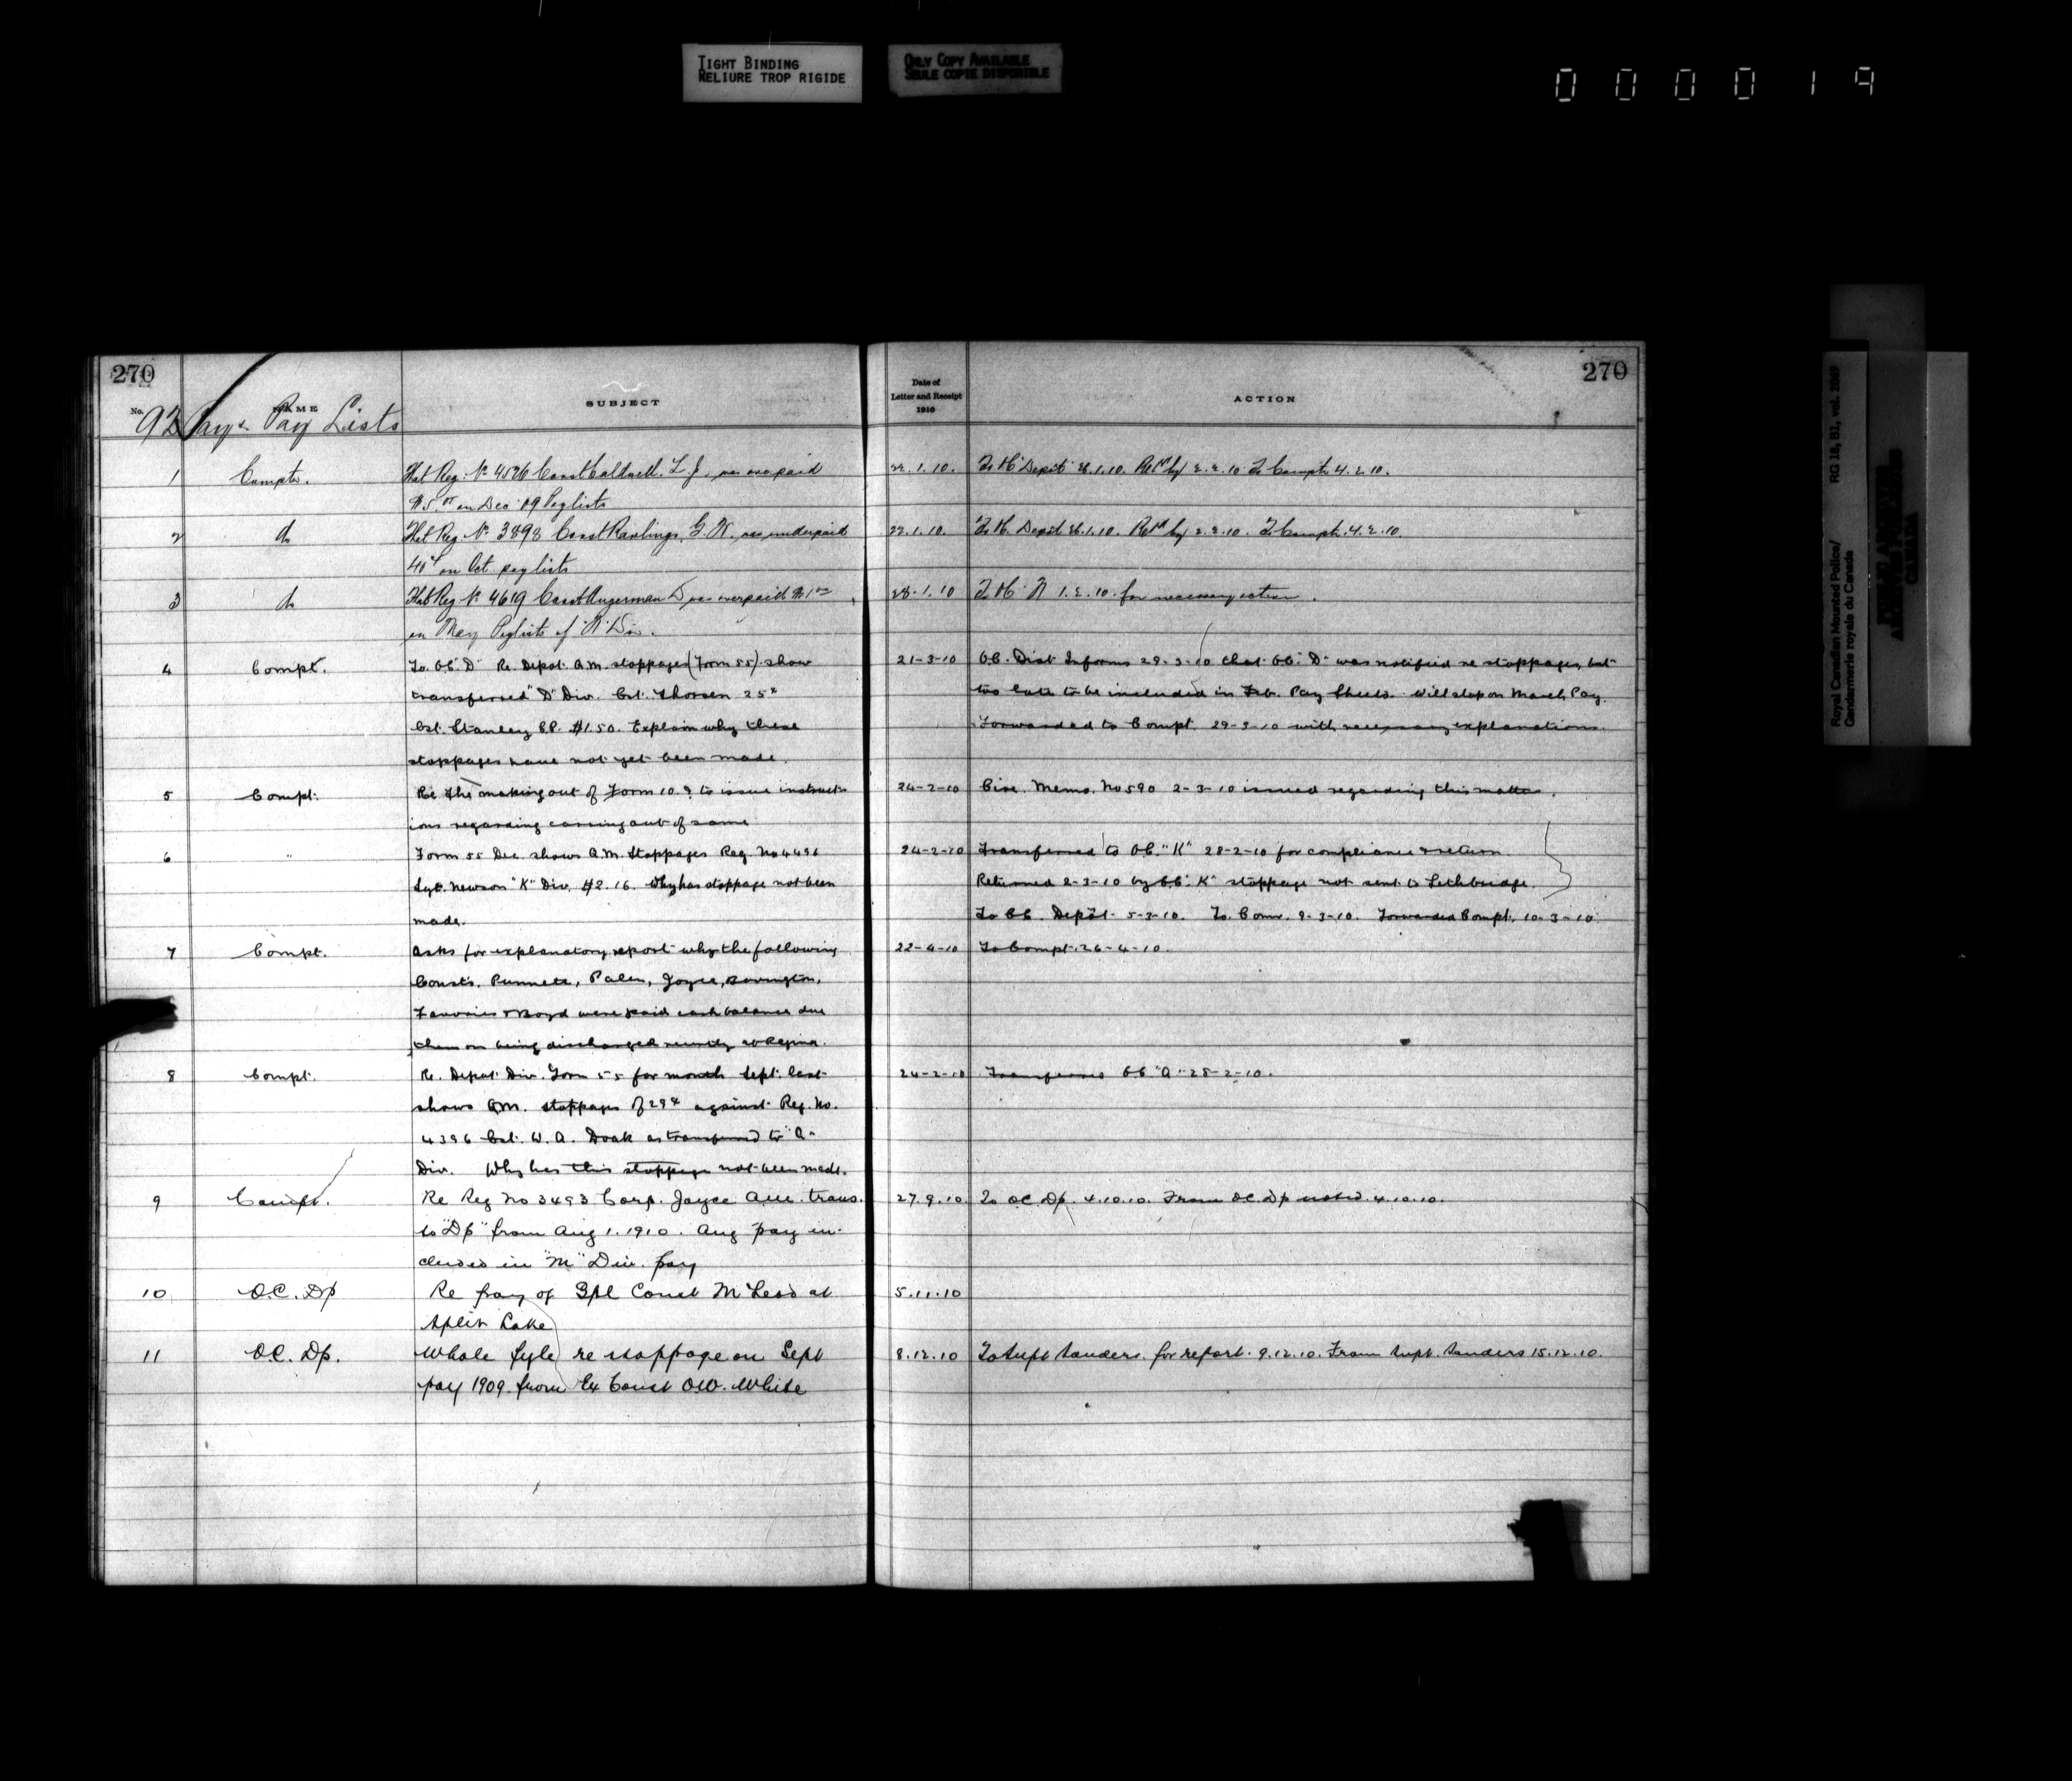 TIGHT BINDING
RELIURE TROP RIGIDE
ONLY COPY AVAILABLE
SEULE COPIE DISPONIBLE
000019
270
No. NAME SUBJECT
92 Pay & Pay Lists
1 Compt. That Reg. No 4536 Const Caldwell. L. J. was overpaid
on Dec '09 Paylists
2 do That Reg. No 3898 Const Rawlings, G. W. was underpaid
40¢ on Oct paylists
3 do That Reg No 4619 Const Angerman D was overpaid $1.00
on May Paylists of "N" Div.
4 Compt. To. O.C. "D" Re. Depot. Q.M. stoppages (Form 55) show
transferred "D" Div. Cst. Thorsen 25¢
Cst. Stanley C.P. $1.50. Explain why these
stoppages have not yet been made.
5 Compt. Re The making out of Form 10.9 to issue instruct-
ions regarding carrying out of same
6 " Form 55 Dec. shows Q.M. Stoppages Reg. No 4496
Sgt. Newson "K" Div. $2.16. Why has stoppage not been
made.
7 Compt. Asks for explanatory report why the following
Const's. Punnett, Palen, Joyce, Bovington,
& Boyd were paid cash balance due
them on being discharged recently at Regina.
8 Compt. Re. Depot Div. Form 55 for month Sept. last
shows Q.M. stoppages of 29¢ against Reg. No.
4396 Cst. W. A. Doak as transferred to "A"
Div. Why has this stoppage not been made.
9 Compt. Re Reg No 3493 Corp. Joyce A.W. trans.
to "Dp" from Aug 1. 1910. Aug pay in-
cluded in "M" Div. pay
10 O.C. Dp Re pay of Spl Const McLeod at
Split Lake
11 O.C. Dp. Whole fyle re stoppage on Sept
pay 1909. from Ex Const O.W. White
270
Date of
Letter and Receipt
1910
ACTION
22.1.10. To "Depot" 26.1.10. Retd by 2.2.10 To Compt. 4.2.10.
22.1.10. To Depot 26.1.10. Retd by 2.2.10. To Compt. 4.2.10.
28.1.10 To "N" 1.2.10. for necessary action.
21-3-10 O.C. Dist Informs 29-3-10 that O.C. "D" was notified re stoppages, but
too late to be included in Feb. Pay Sheets. Will stop on March Pay.
Forwarded to Compt. 29-3-10 with necessary explanations.
24-2-10 Circ. Memo. No 590 2-3-10 issued regarding this matter.
24-2-10 Transferred to O.C. "K" 28-2-10 for compliance & return
Returned 2-3-10 by O.C. "K" stoppage not sent to Lethbridge.
To O.C. Depot 5-3-10. To Comr. 9-3-10. Forwarded Compt. 10-3-10.
22-4-10 To Compt. 26-4-10.
24-2-10 Transferred O.C. "A" 28-2-10.
27.9.10 To O.C. Dp. 4.10.10. From O.C. Dp noted. 4.10.10.
5.11.10
8.12.10 To Supt Sanders. for report. 9.12.10. From Supt. Sanders 15.12.10.
Royal Canadian Mounted Police/
Gendarmerie royale du Canada
RG 18, B1, vol. 2069